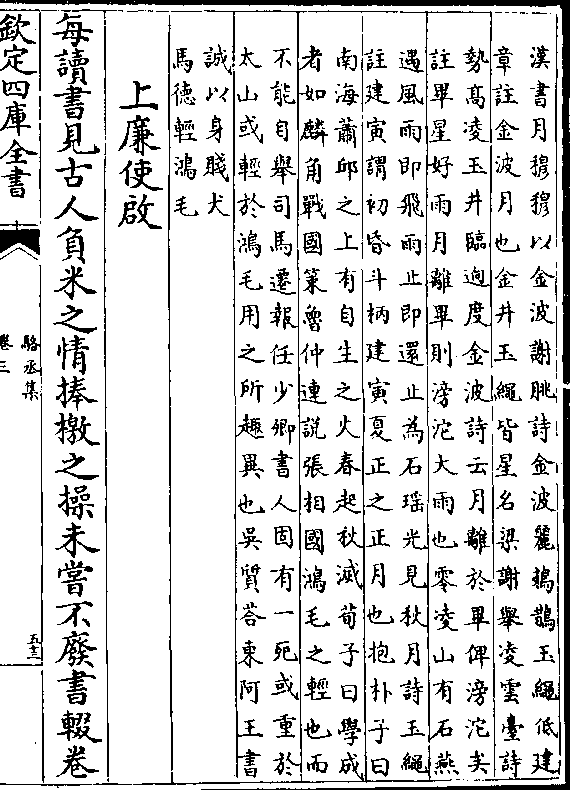 漢書月穆穆以金波謝朓詩金波麗鳷鵲玉繩低建
章註金波月也金井玉繩皆星名梁謝舉凌雲臺詩
勢高凌玉井臨迥度金波詩云月離於畢俾滂沱矣
註畢星好雨月離畢則滂沱大雨也零凌山有石燕
遇風雨即飛雨止即還止為石瑶光見秋月詩玉繩
註建寅謂初昏斗柄建寅夏正之正月也抱朴子曰
南海蕭邱之上有自生之火春起秋滅荀子曰學成
者如麟角戰國策魯仲連說張相國鴻毛之輕也而
不能自舉司馬遷報任少卿書人固有一死或重於
太山或輕於鴻毛用之所趣異也吳質荅東阿王書
誠以身賤犬
馬德輕鴻毛
上廉使啟
每讀書見古人負米之情捧檄之操未嘗不廢書輟卷
欽定四庫全書
駱丞集
卷三